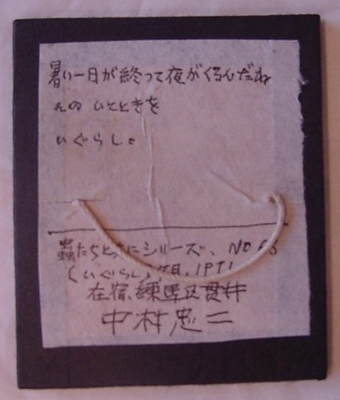 暑い一日が終って夜がくるんだね
そのひとときを
いぐらし。
蟲たちとともにシリーズ、NO 66
(いぐらし)7月、1971
在宿、練馬区貫井
中村忠二